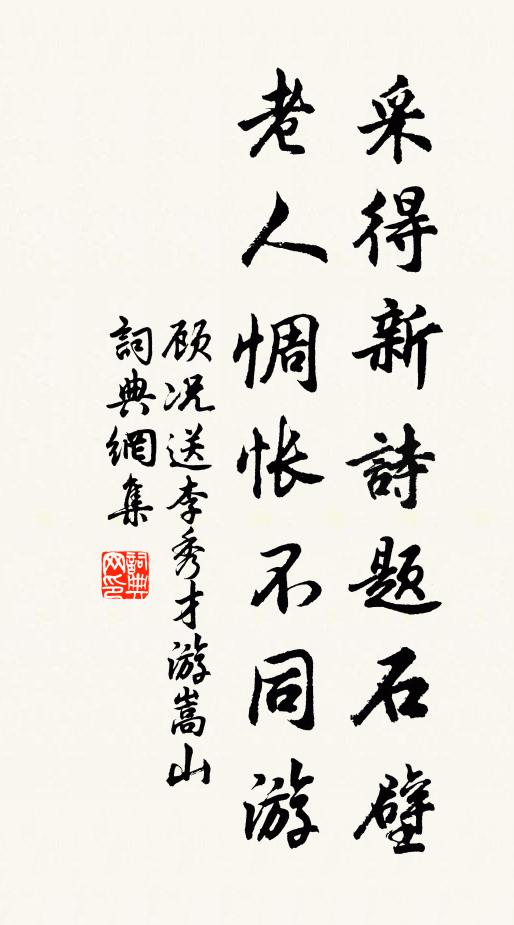 采得新詩题石壁
老人惆怅不同游
顾况送李秀才游嵩山
詞典網集
詞典网印